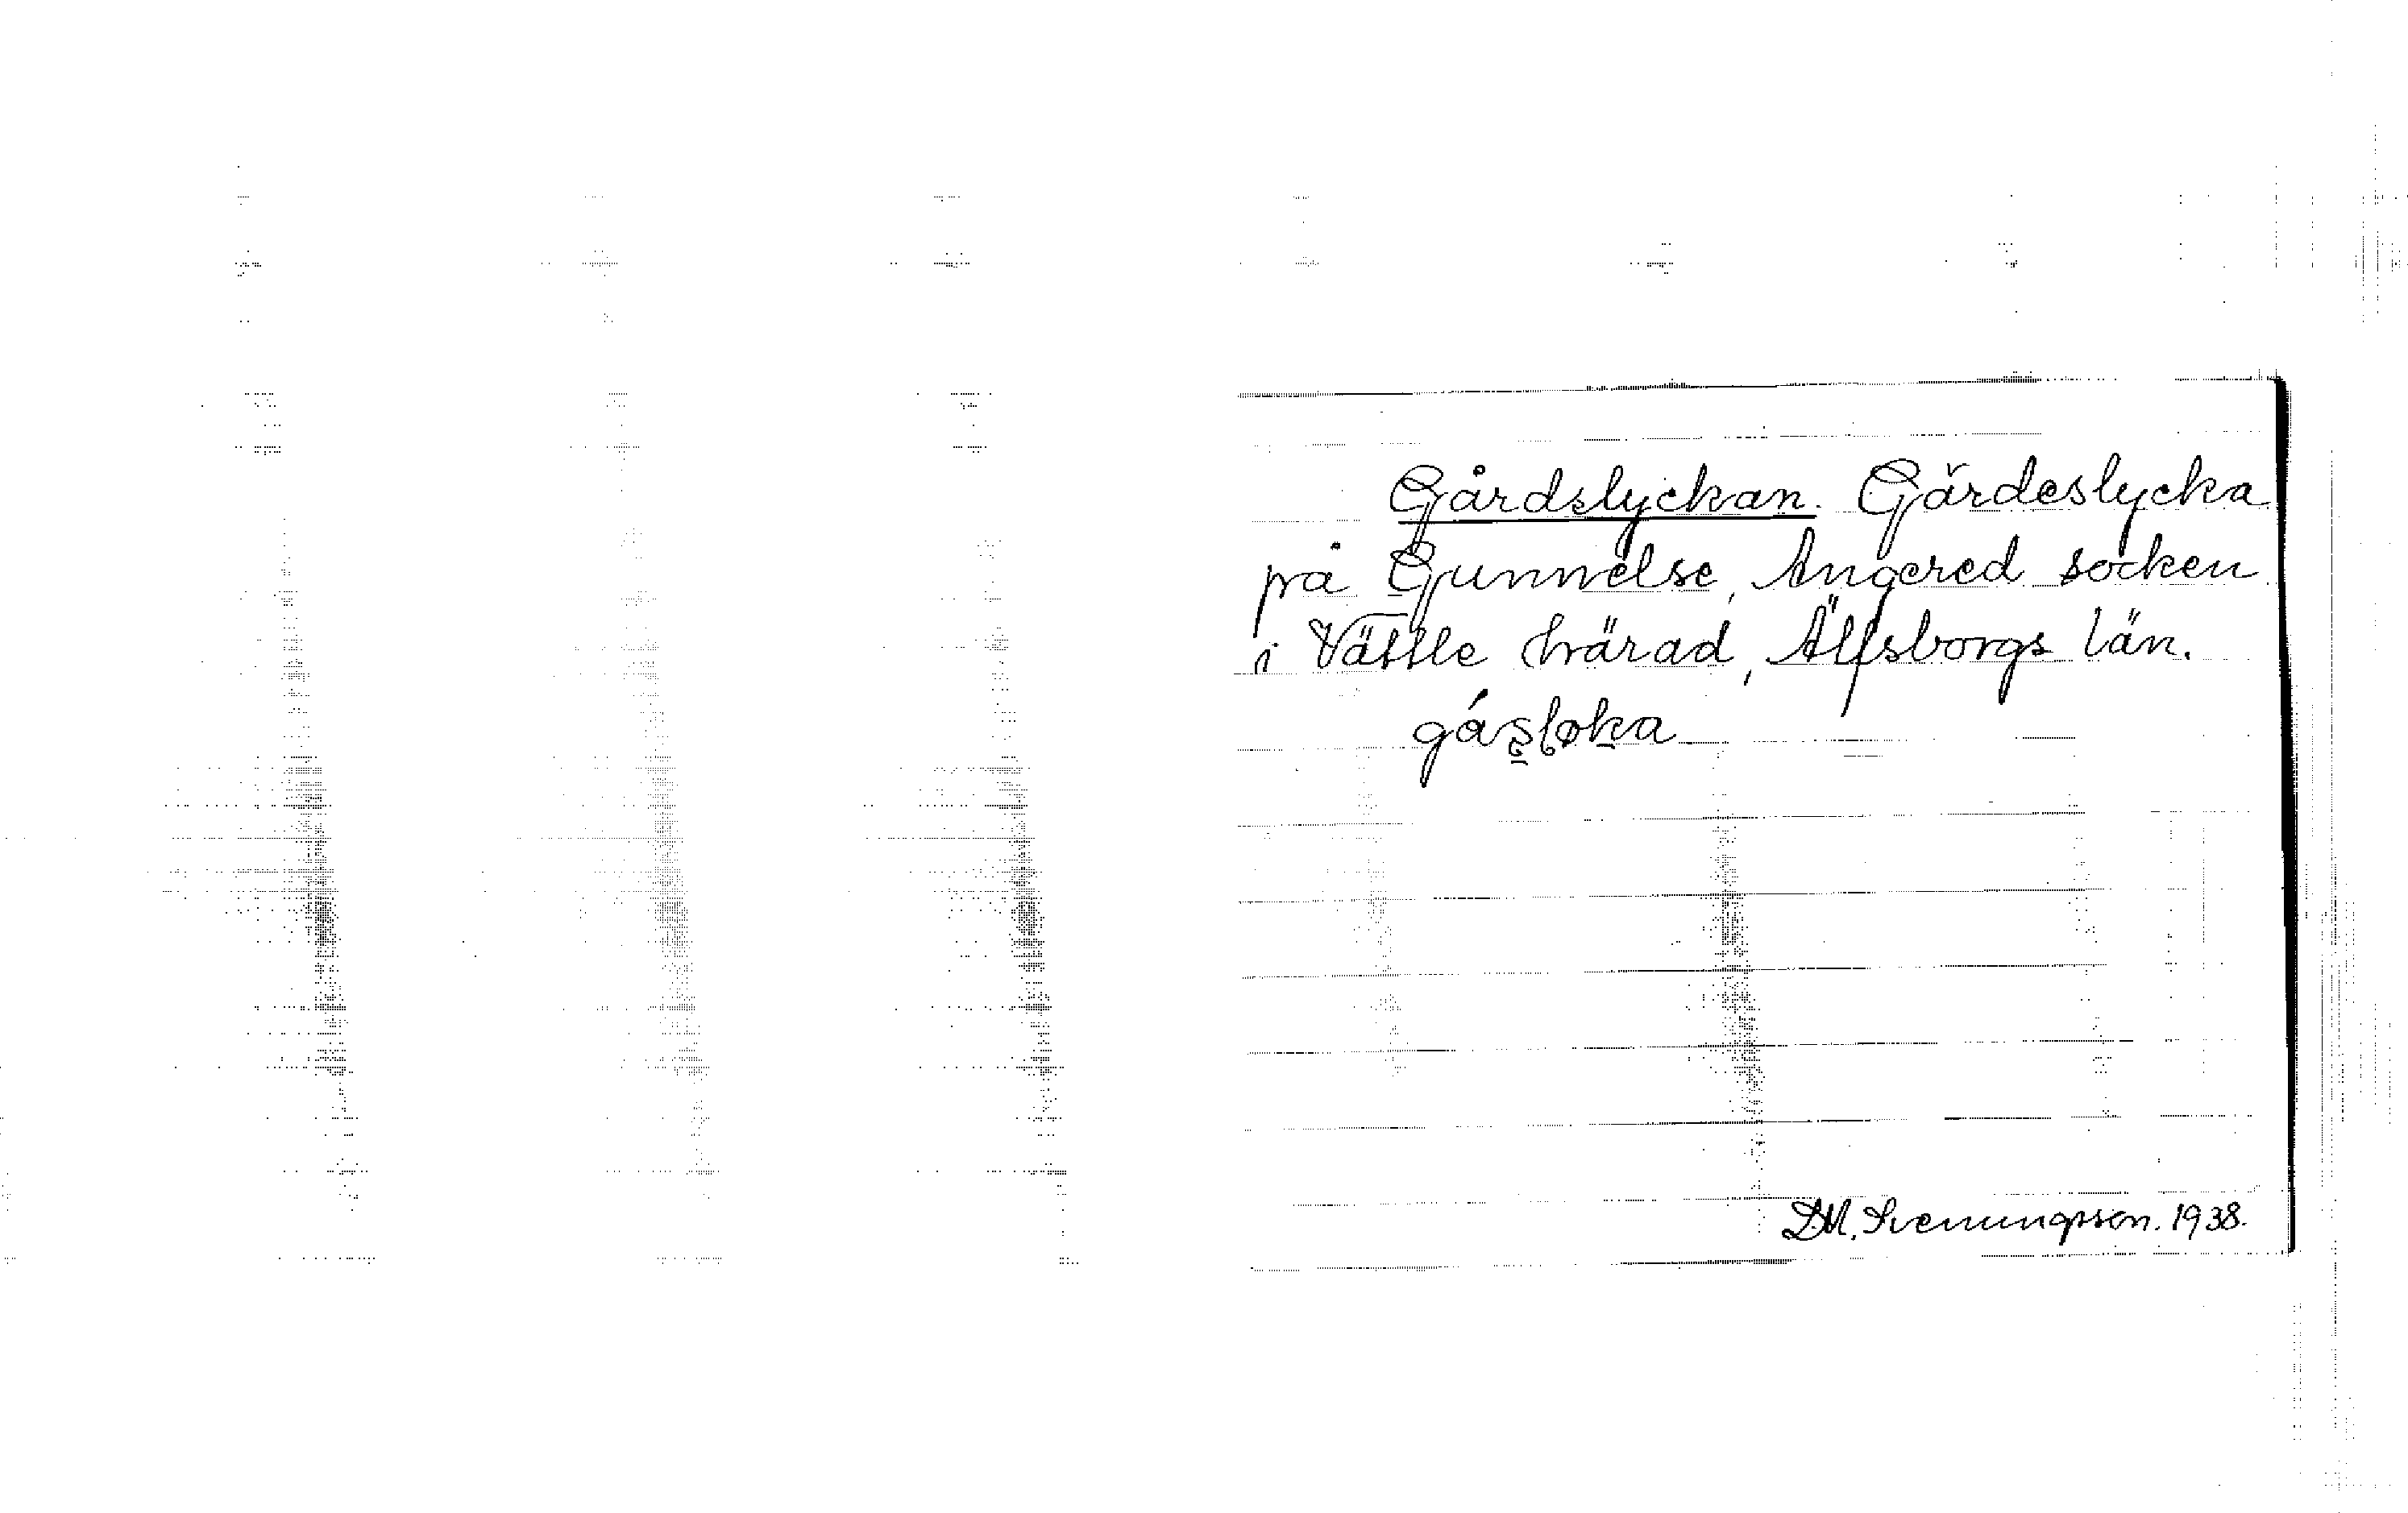 Gårdslyckan. Gärdeslycka
på Gunnelse, Angered socken
i Vättle härad, Älfsborgs län.
gásløka
D.M. Svenungsson. 1938.